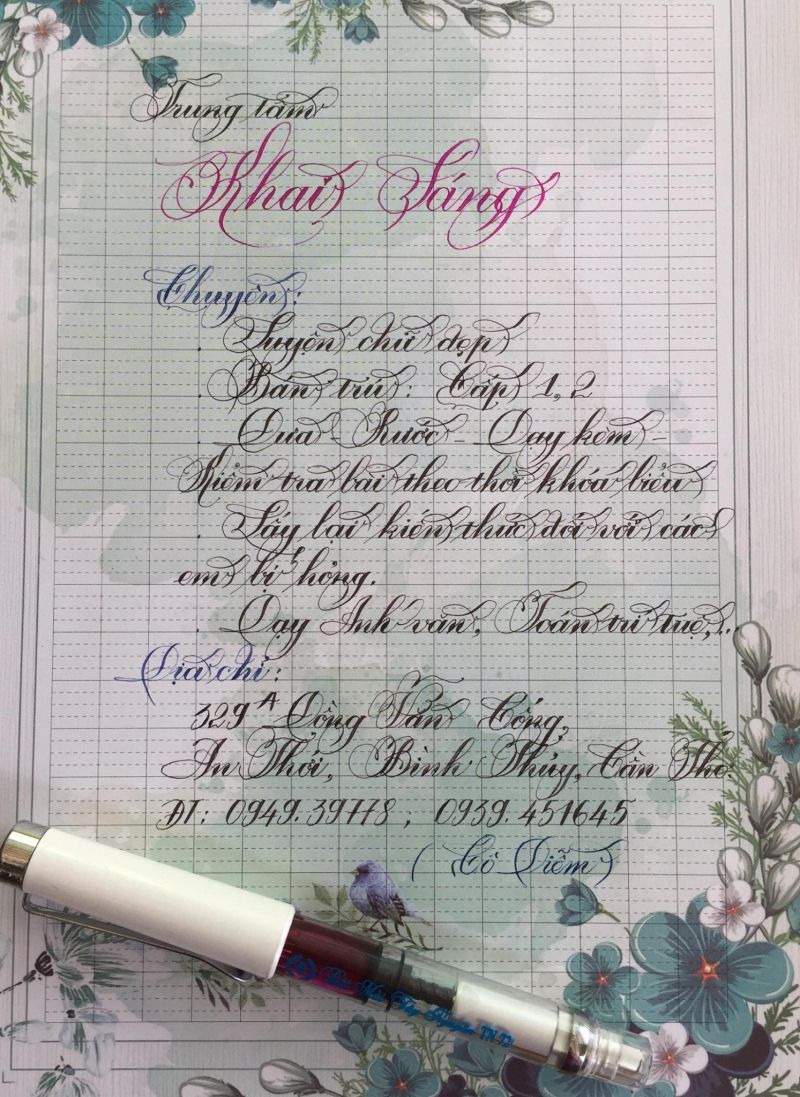 Trung tâm
Khai Sáng
Chuyên:
. Luyện chữ đẹp
. Bán trú: Cấp 1, 2
. Đưa - Rước - Dạy kèm -
Kiểm tra bài theo thời khóa biểu
. Lấy lại kiến thức đối với các
em bị hỏng.
. Dạy Anh văn, Toán trí tuệ,..
Địa chỉ:
329A Đồng Văn Cống,
An Thới, Bình Thủy, Cần Thơ.
ĐT: 0949.39778 ; 0939.451645
( Cô Diễm )